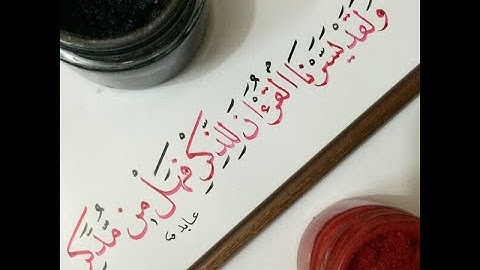 وَلَقَدْ يَسَّرْنَا الْقُرْءَانَ لِلذِّكْرِ فَهَلْ مِن مُّدَّكِرٍ